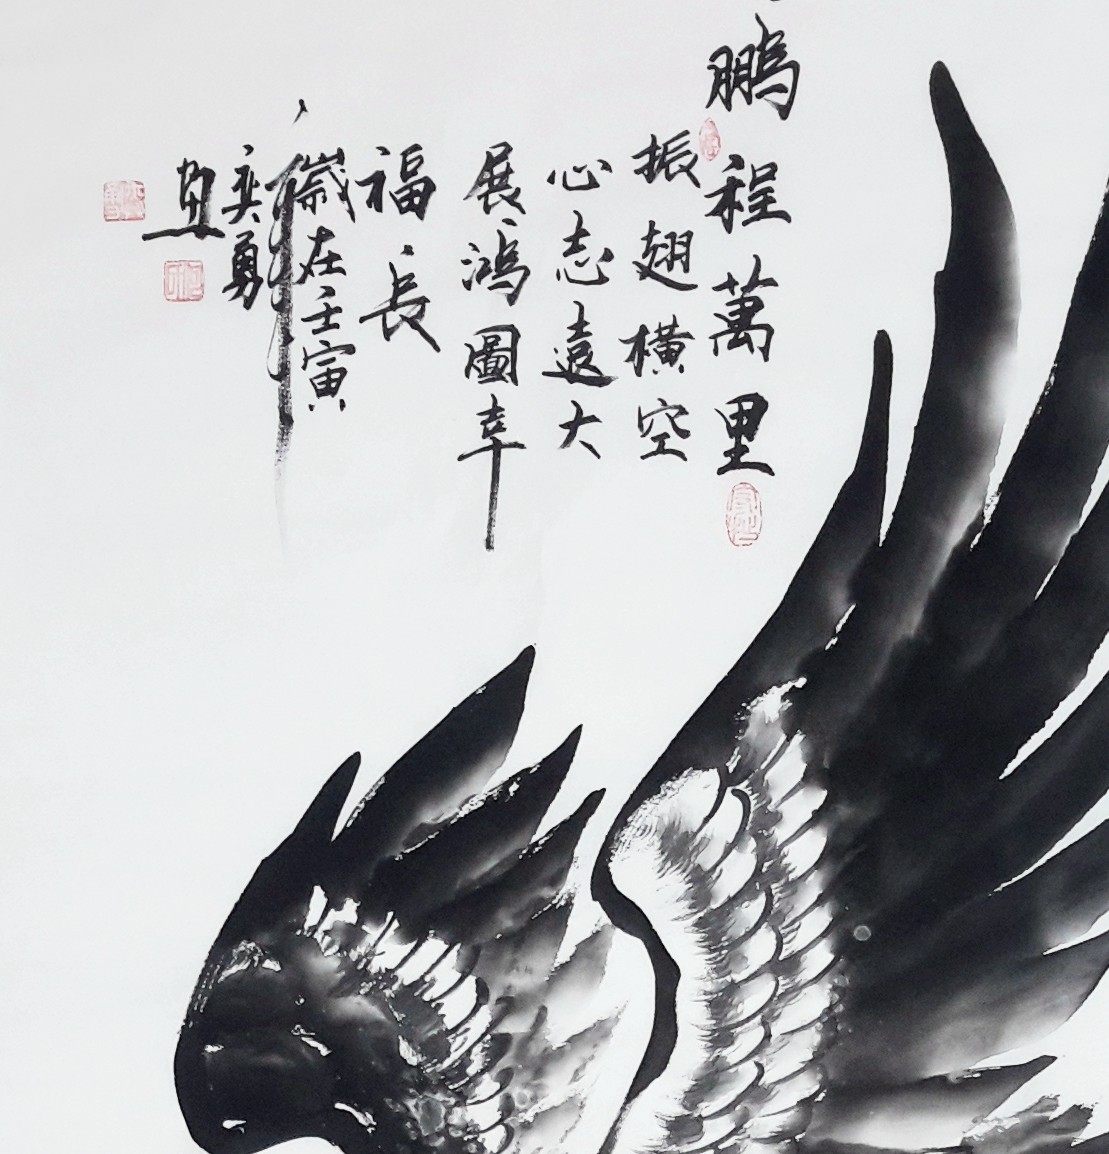 鵬程萬里
振翅橫空
心志遠大
展鴻圖幸
福長
歲在壬寅
奕勇
畫